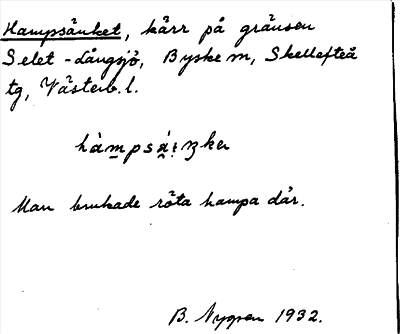 Hampsänket, kärr på gränsen
Selet - Långsjö, Byske sn, Skellefteå
tg, Västerb. l.
Man brukade röta hampa där.
B. Nygren 1932.